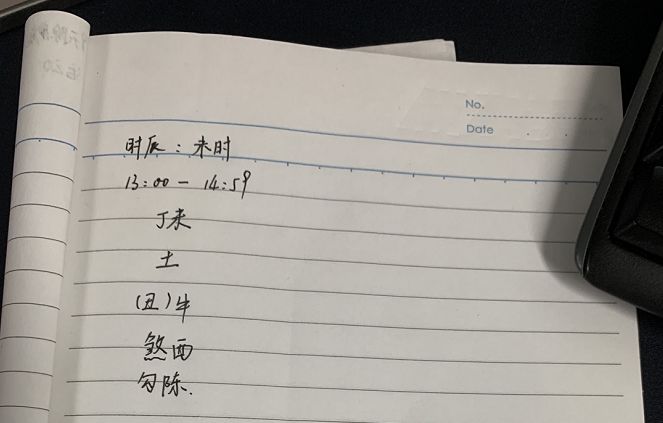 No.
Date
时辰：未时
13:00 — 14:59
丁未
土
(丑)牛
煞西
勾陈.